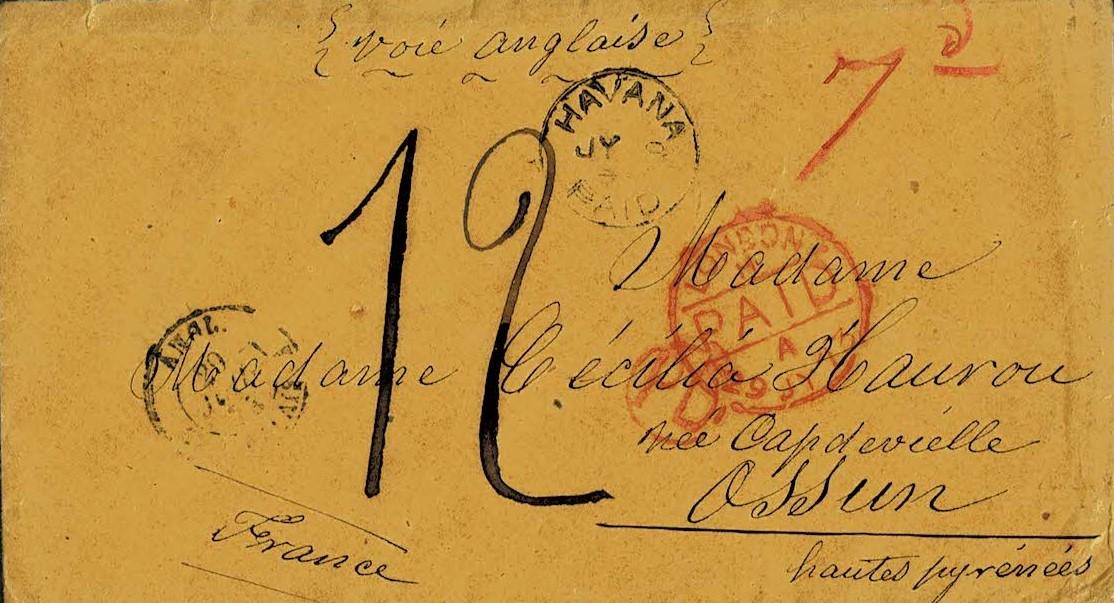 voie anglaise
7 D
HAVANA
JY
PAID
12
Madame
LONDON
PAID
Madame Cécilia Haurou
née Capdevielle
Ossun
hautes pyrénées
France
ANGL.